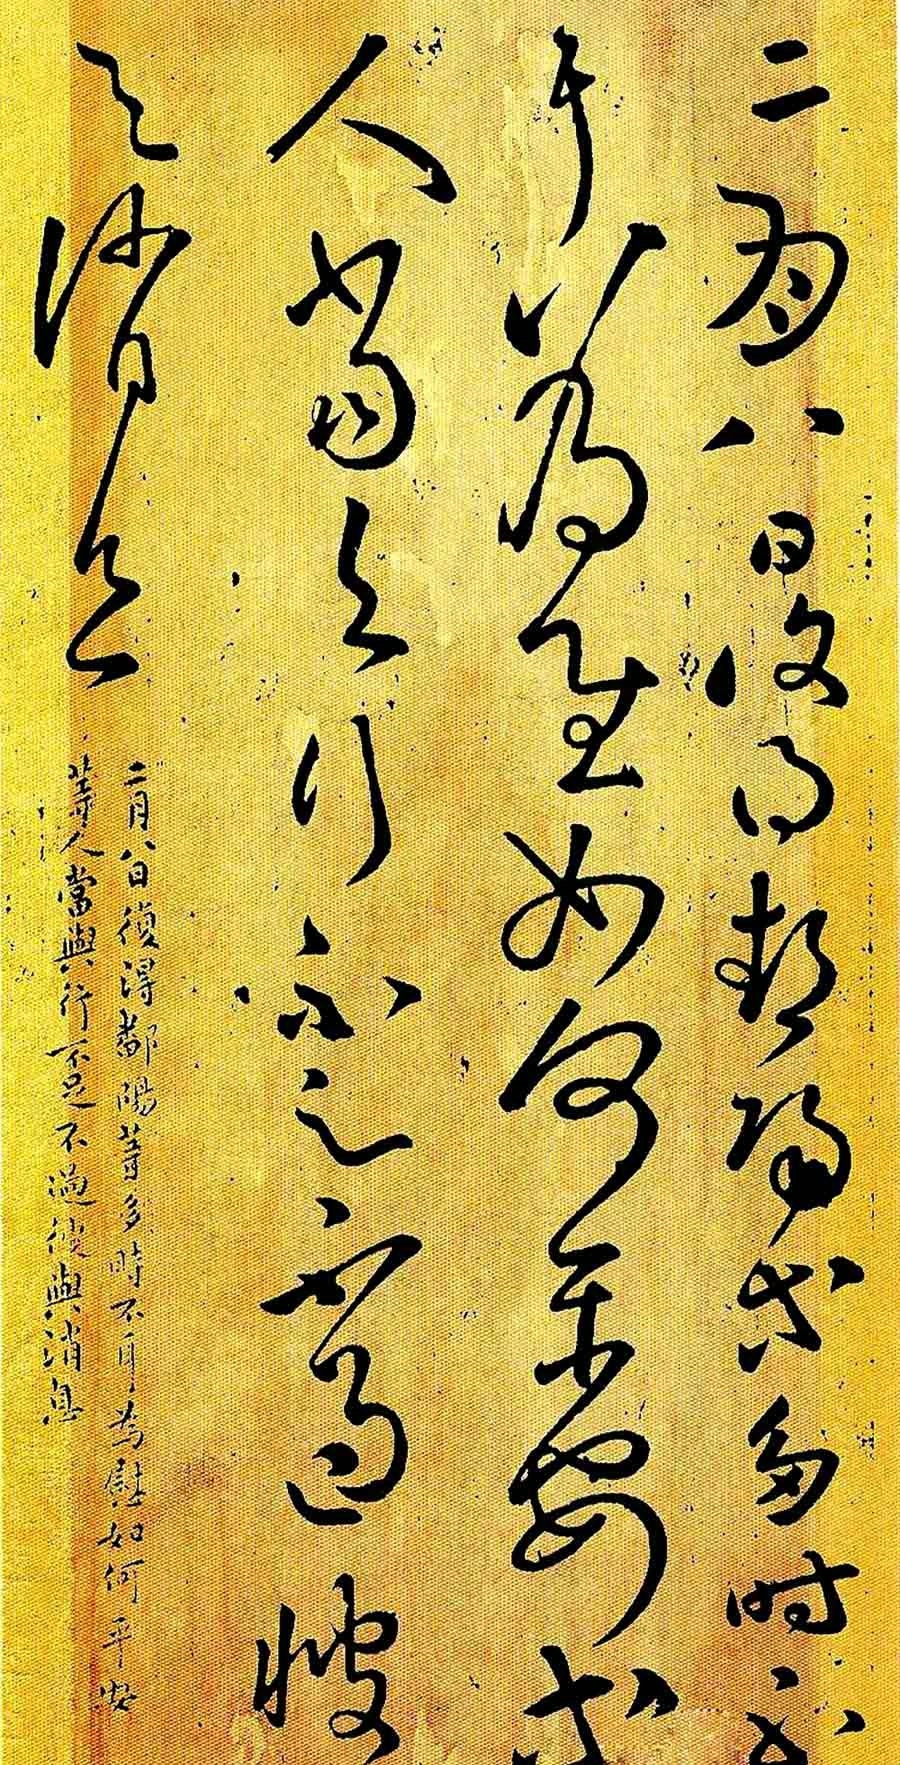 二月八日復得鄱陽等多時不
耳為慰如何平安等
人當與行不足不過
與消息
二月八日復得鄱陽等多時不耳為慰如何平安
等人當與行不足不過與消息